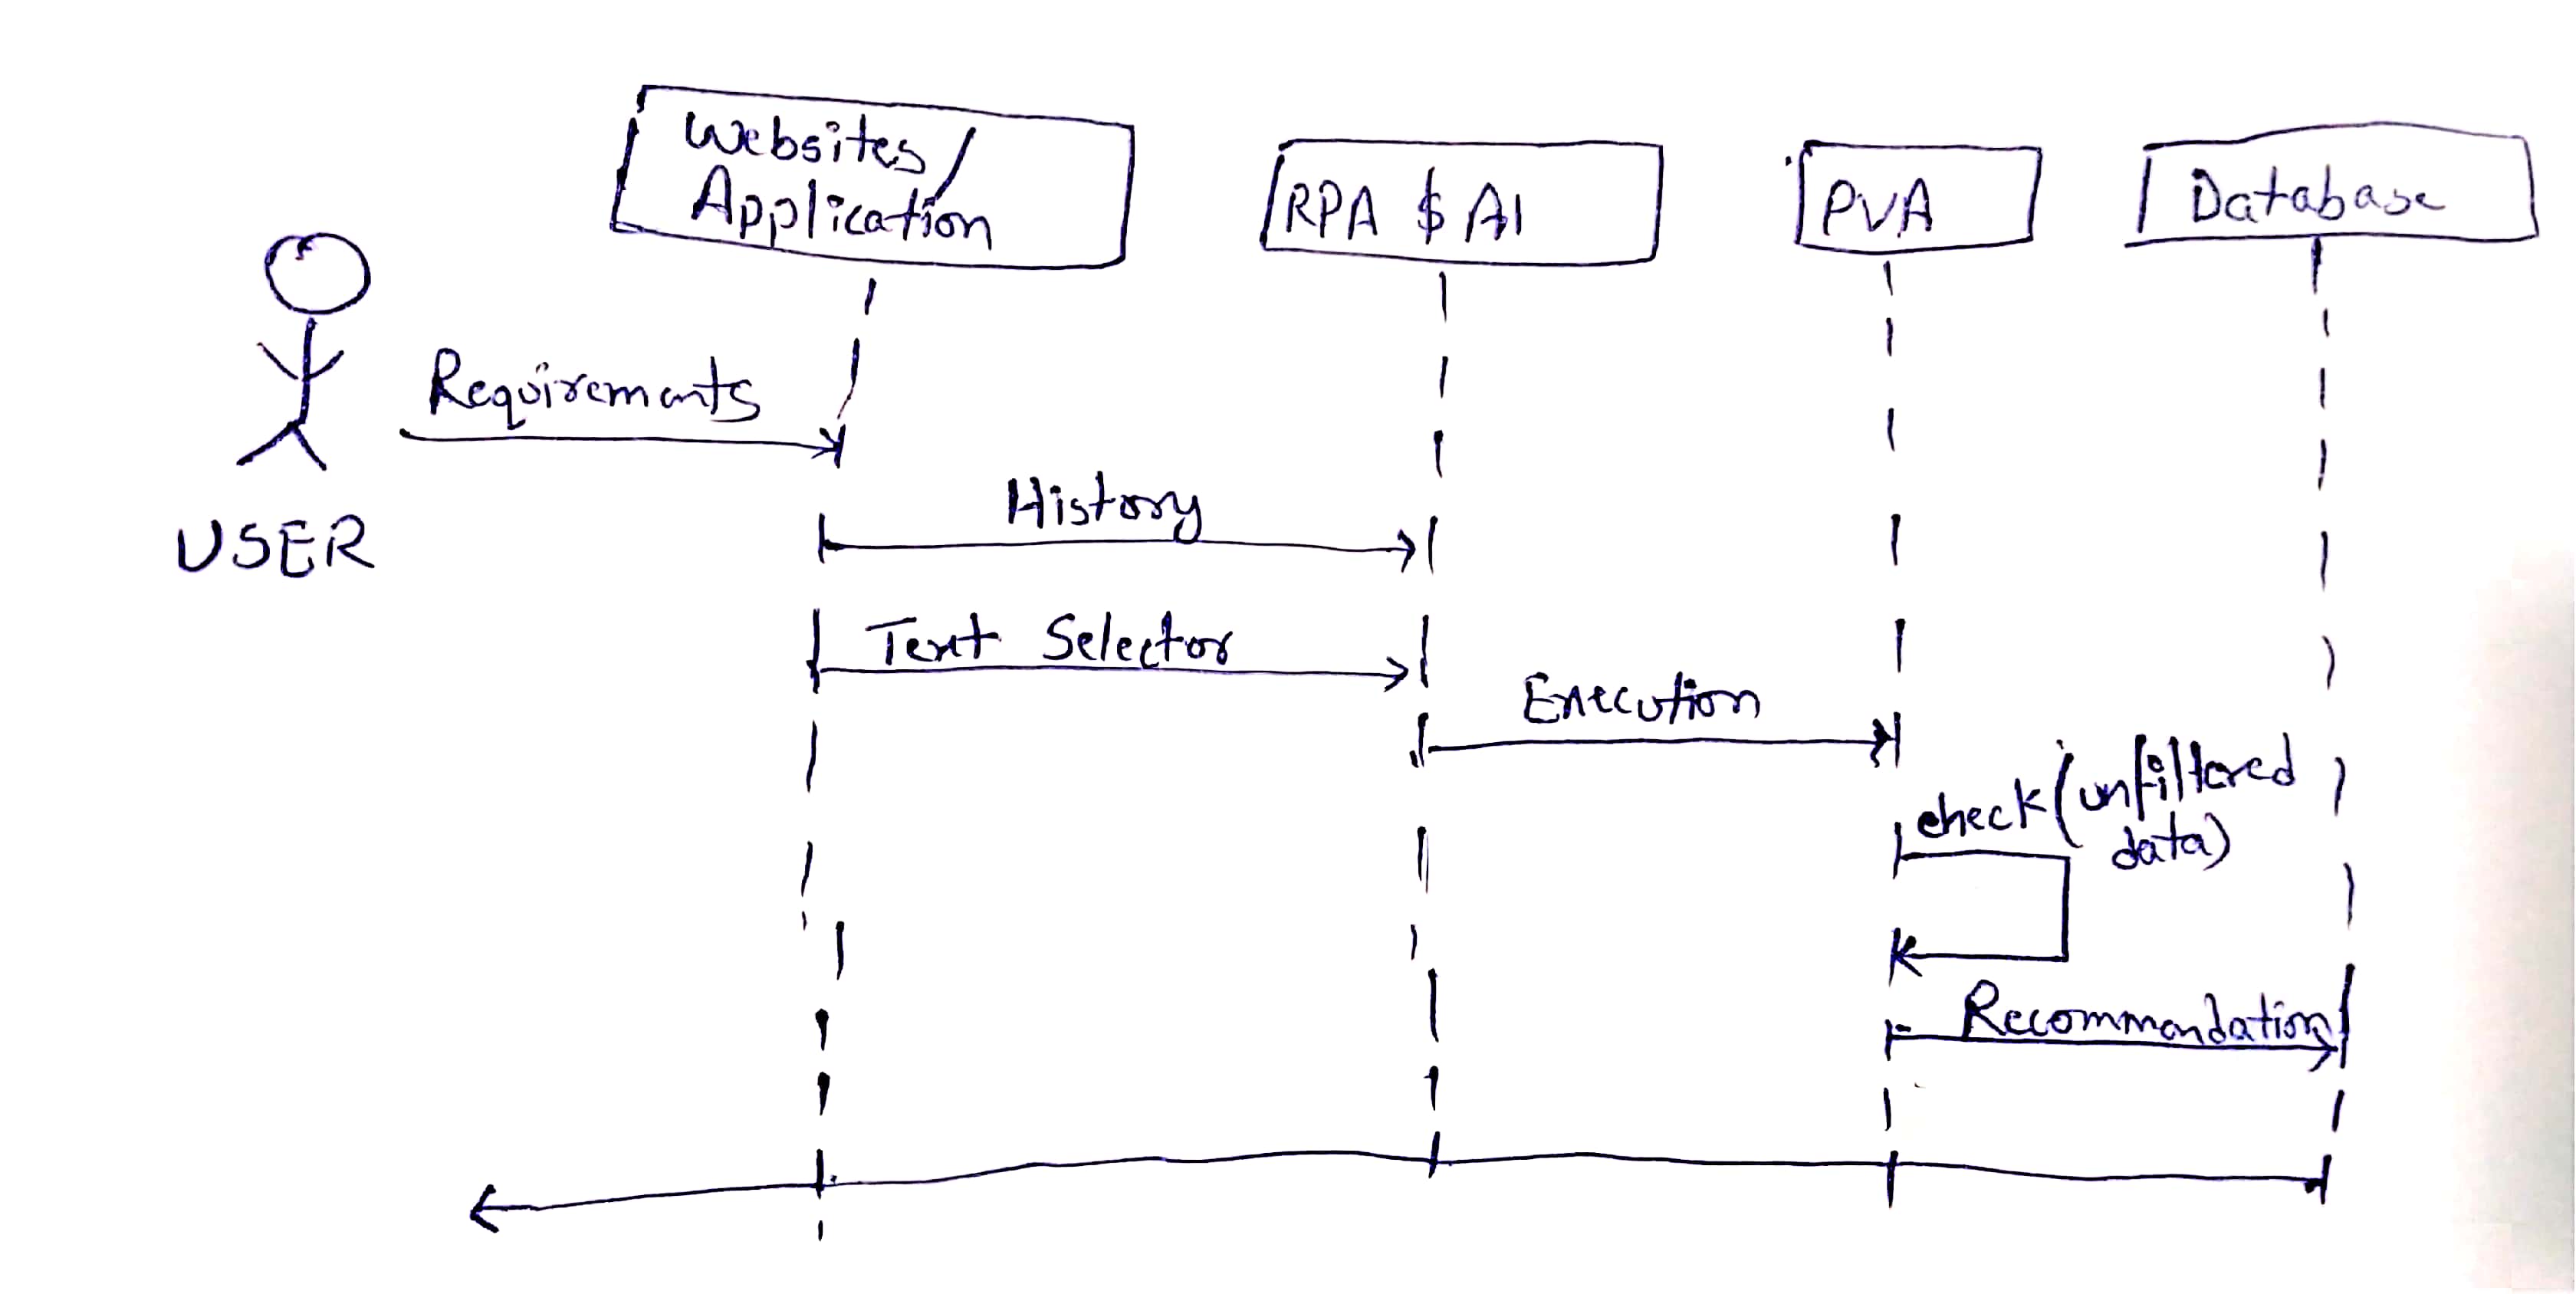 Websites/
Application
RPA $ AI
PVA
Database
Requirements
USER
History
Text Selector
Execution
check(unfiltered
data)
Recommandation